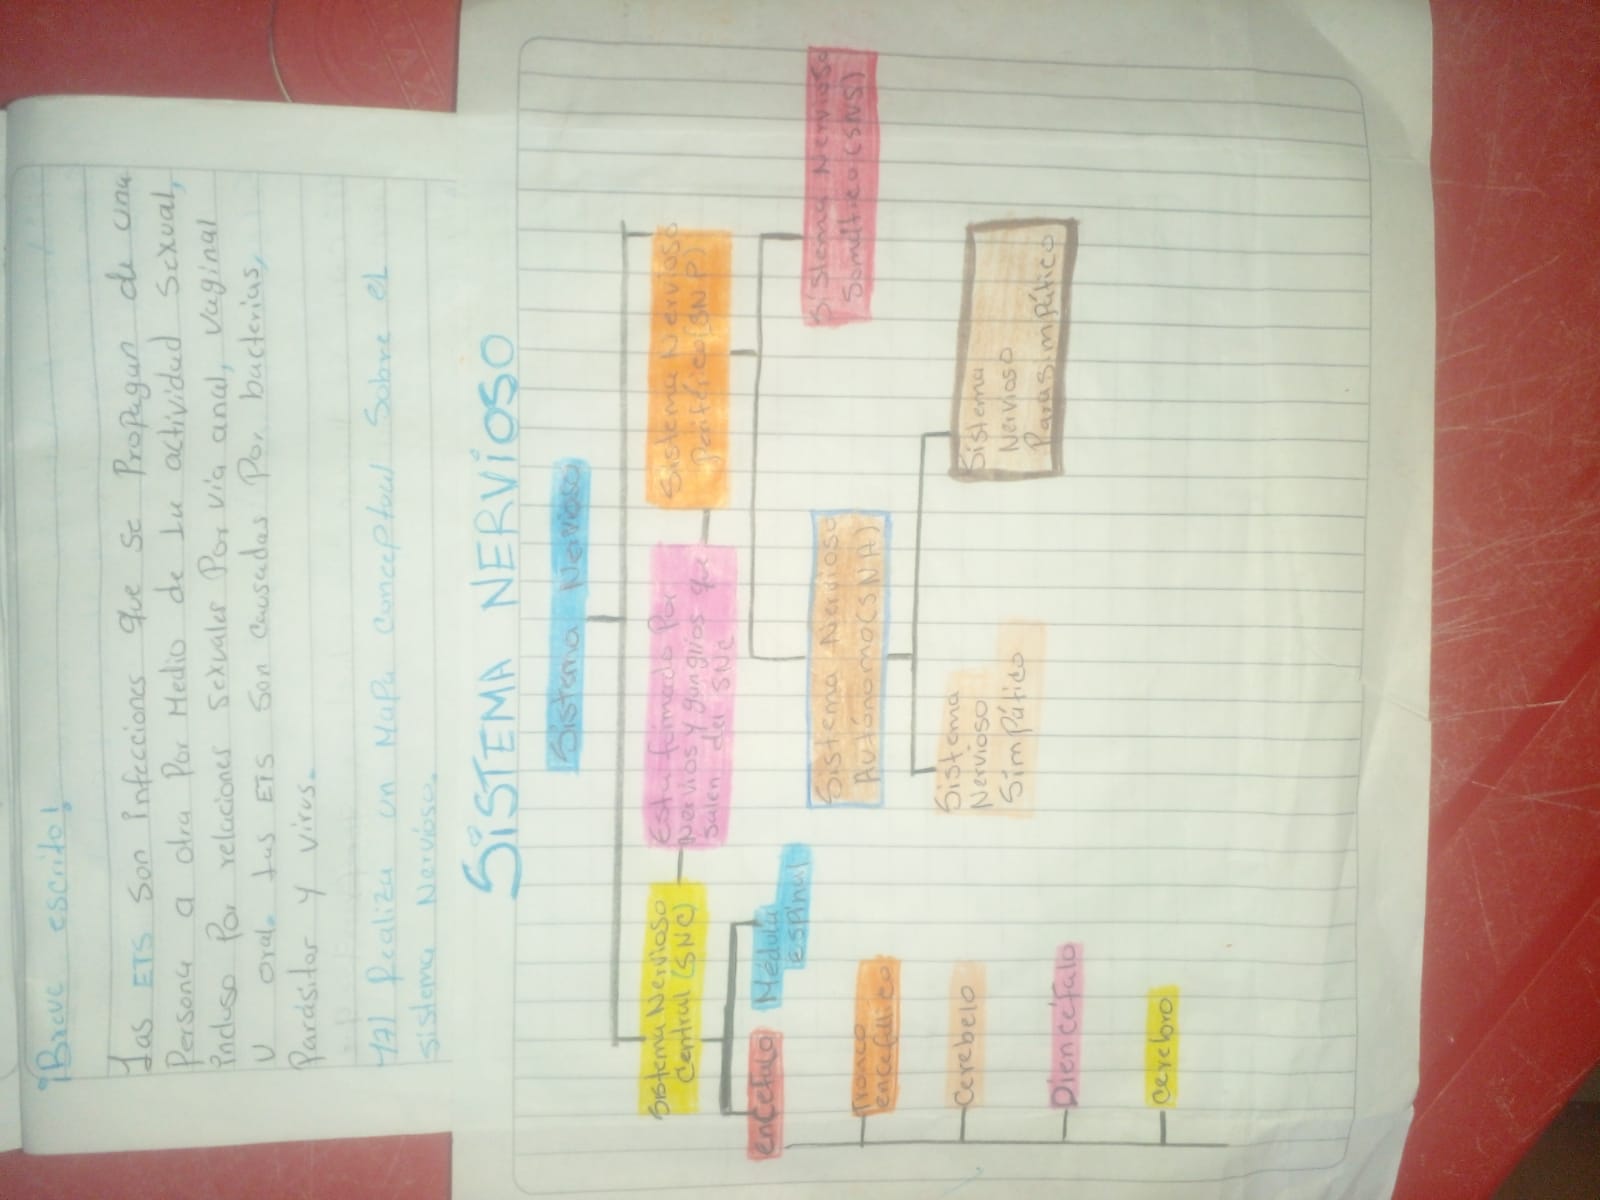 ¡Breve escrito!
Las ETS son infecciones que se Propagan de una
Persona a otra Por Medio de la actividad sexual,
incluso Por relaciones sexuales Por vía anal, vaginal
u oral. Las ETS son causadas Por bacterias,
Parásitar y virus.
17) Realiza un Mapa conceptual sobre el
sistema Nervioso.
SISTEMA NERVIOSO
Sistema Nervioso
Sistema Nervioso
Central (SNC)
Esta formado Por
Nervios y ganglios que
salen del SNC
Sistema Nervioso
periférico (SNP)
encefalo
Médula
espinal
Sistema Nervioso
Autónomo (SNA)
Sistema Nervioso
(SNS)
Tronco
encefálico
Cerebelo
Diencéfalo
cerebro
Sistema
Nervioso
Simpático
Sistema
Nervioso
Parasimpático